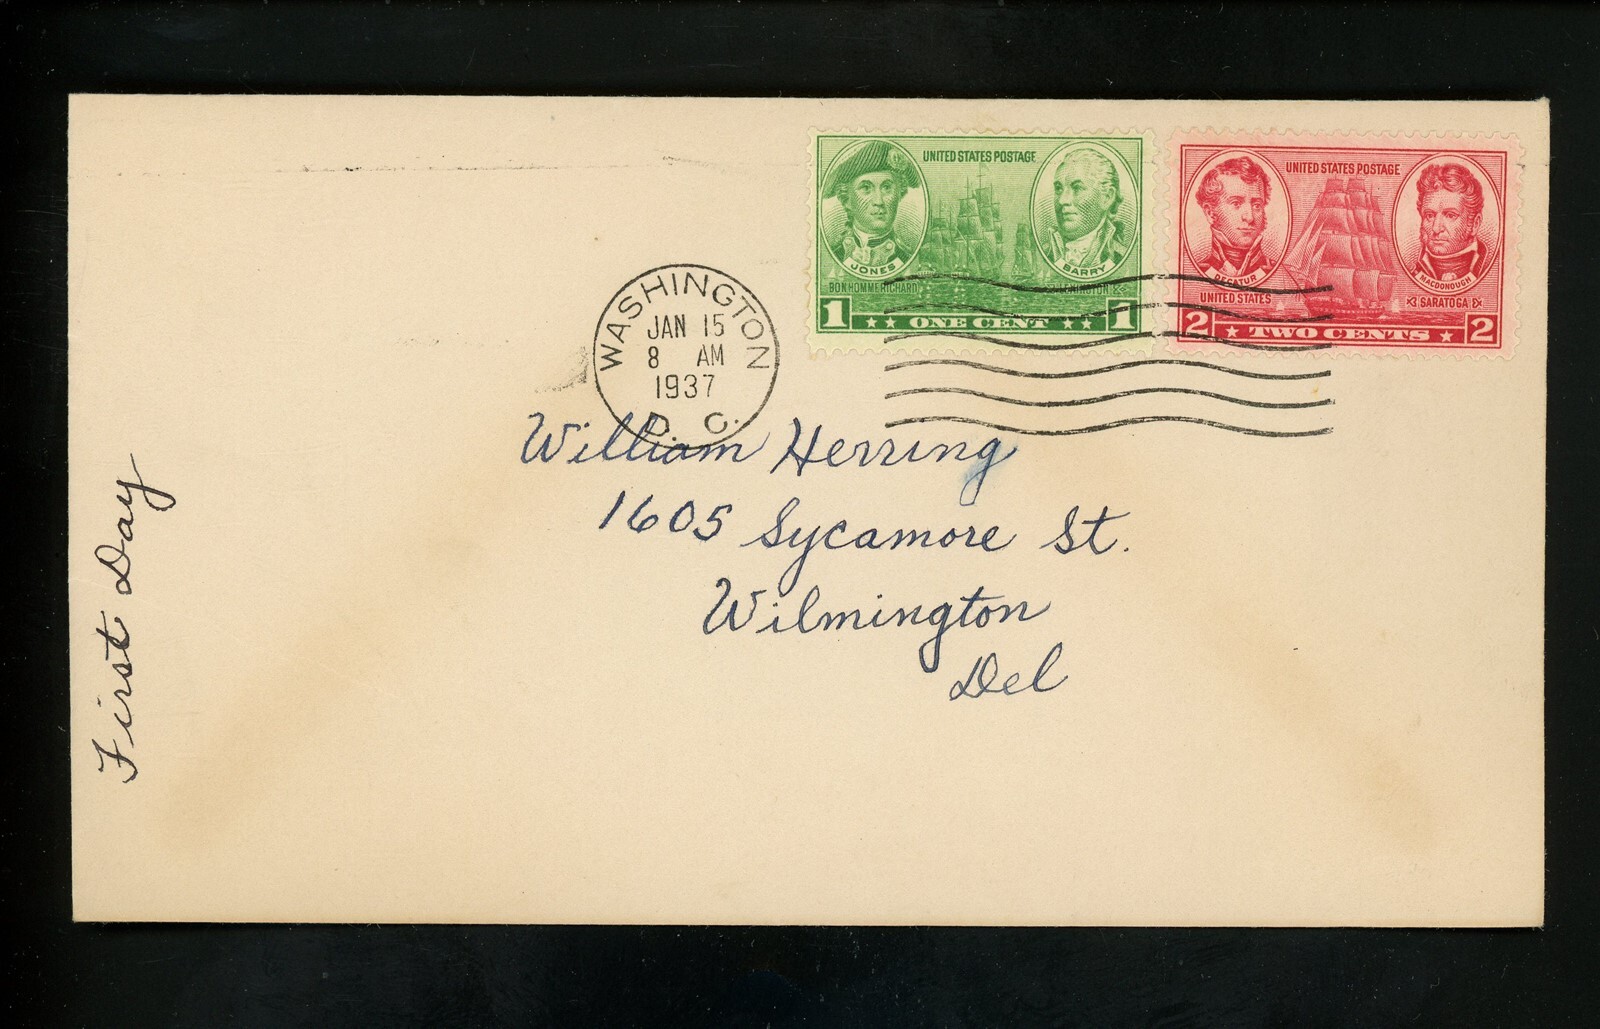 UNITED STATES POSTAGE
JONES
BARRY
BON HOMME RICHARD
LEXINGTON
1 ONE CENT 1
UNITED STATES POSTAGE
DECATUR
MACDONOUGH
UNITED STATES
SARATOGA
2 TWO CENTS 2
WASHINGTON
JAN 15
8 AM
1937
D. C.
William Herring
1605 Sycamore St.
Wilmington
Del
First Day